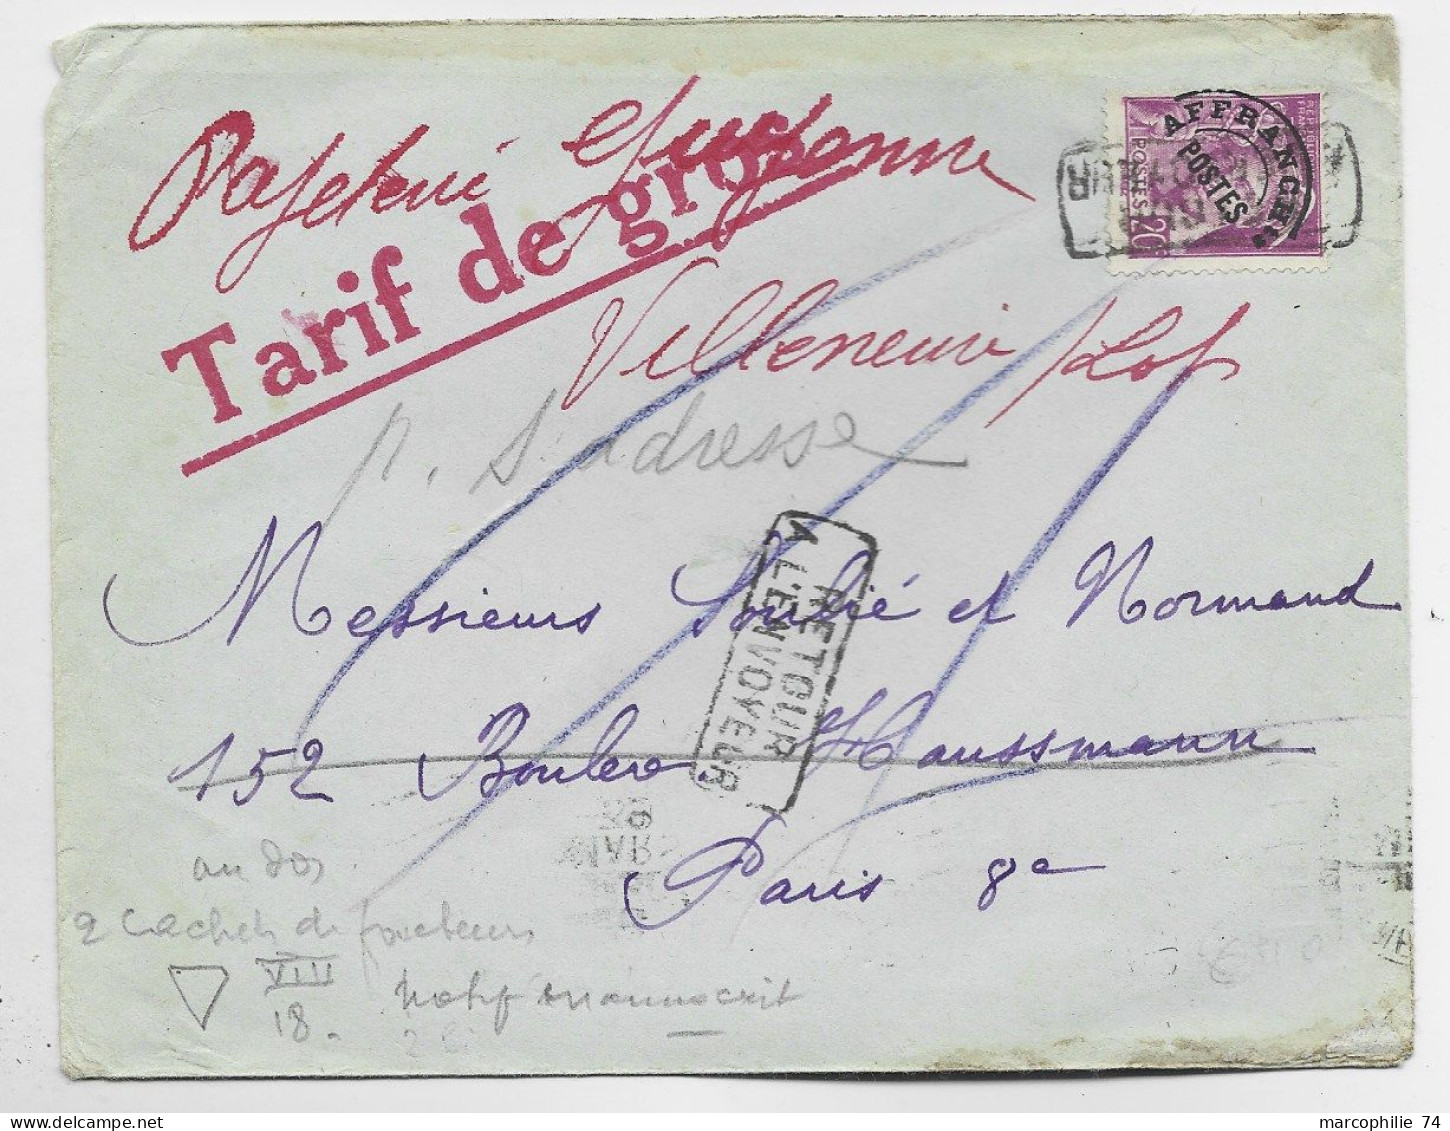 Papeterie Guyenne
Tarif de gros
Villeneuve /Lot
AFFRANCHts
POSTES
REPUBLIQUE
FRANC
POSTES 20c
n. d'adresse
Messieurs Soulié et Normand
RETOUR
A L'ENVOYEUR
152 Boulevd Haussmann
Paris 8e
au dos
2 cachets de facteurs
VIII
18
Motif manuscrit
marcophilie 74